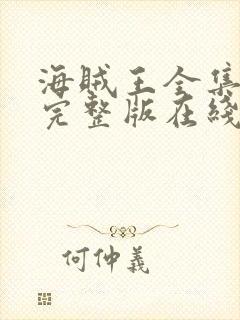 海贼王全集
完整版在线
何仲義